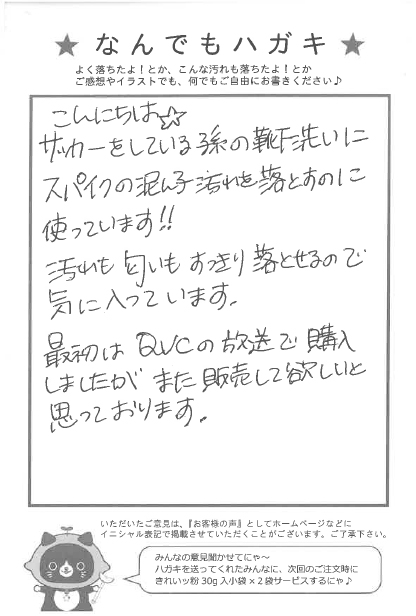 ★ なんでもハガキ ★
よく落ちたよ！とか、こんな汚れも落ちたよ！とか
ご感想やイラストでも、何でもご自由にお書きください♪
こんにちは☆
サッカーをしている孫の靴下洗いに
スパイクの泥んこ汚れを落とすのに
使っています!!
汚れも匂いもすっきり落とせるので
気に入っています。
最初はQVCの放送で購入
しましたがまた販売して欲しいと
思っております。
いただいたご意見は、『お客様の声』としてホームページなどに
イニシャル表記で掲載させていただくことがございます。ご了承下さい。
みんなの意見聞かせてにゃ〜
ハガキを送ってくれたみんなに、次回のご注文時に
きれいッ粉 30g 入小袋×2袋サービスするにゃ♪